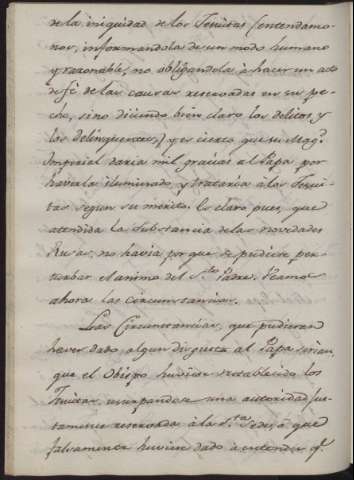 de la iniquidad de los Jesuitas (entendamo-
nos, informandola de un modo humano
y razonable, no obligandola à hacer un acto
de fè de las causas reservadas en su pe-
cho, sino diciendo bien claro los delitos, y
los delinquentes,) y es cierto que su Mag.d
Imperial daria mil gracias al Papa por
haverla iluminado, y trataria à los Jesui-
tas segun su merito. Es claro pues, que
atendida la substancia de las novedades
Rusas, no havia por que se pudiese per-
turbar el animo del S.to Padre. Veamos
ahora las circunstancias.
Las Circunstancias, que pudieran
haver dado algun disgusto al Papa serian,
que el Obispo huviese restablecido los
Jesuitas, usurpandose una autoridad jus-
tamente reservada à la S.ta Sede, ò que
falsamente huviese dado à entender q.e